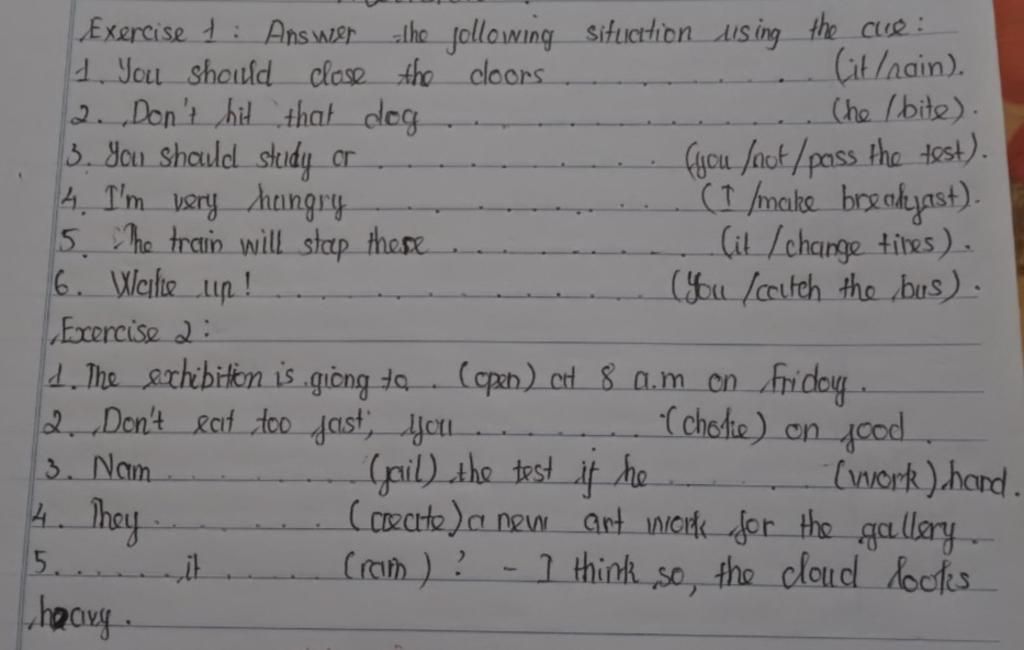 Exercise 1 : Answer the following situation using the cue :
1. You should close the doors .............. (it/rain).
2. Don't hit that dog .............. (he/bite).
3. You should study or .............. (you/not/pass the test).
4. I'm very hungry .............. (I/make breakfast).
5. The train will stop there .............. (it/change tires).
6. Wake up! .............. (You/catch the bus).
Exercise 2 :
1. The exhibition is giong to . (open) at 8 a.m on Friday.
2. Don't eat too fast; you .......... (choke) on food.
3. Nam .......... (fail) the test if he .......... (work) hard.
4. They .......... (create) a new art work for the gallery.
5. ....... it ....... (rain) ? - I think so, the cloud looks
heavy.